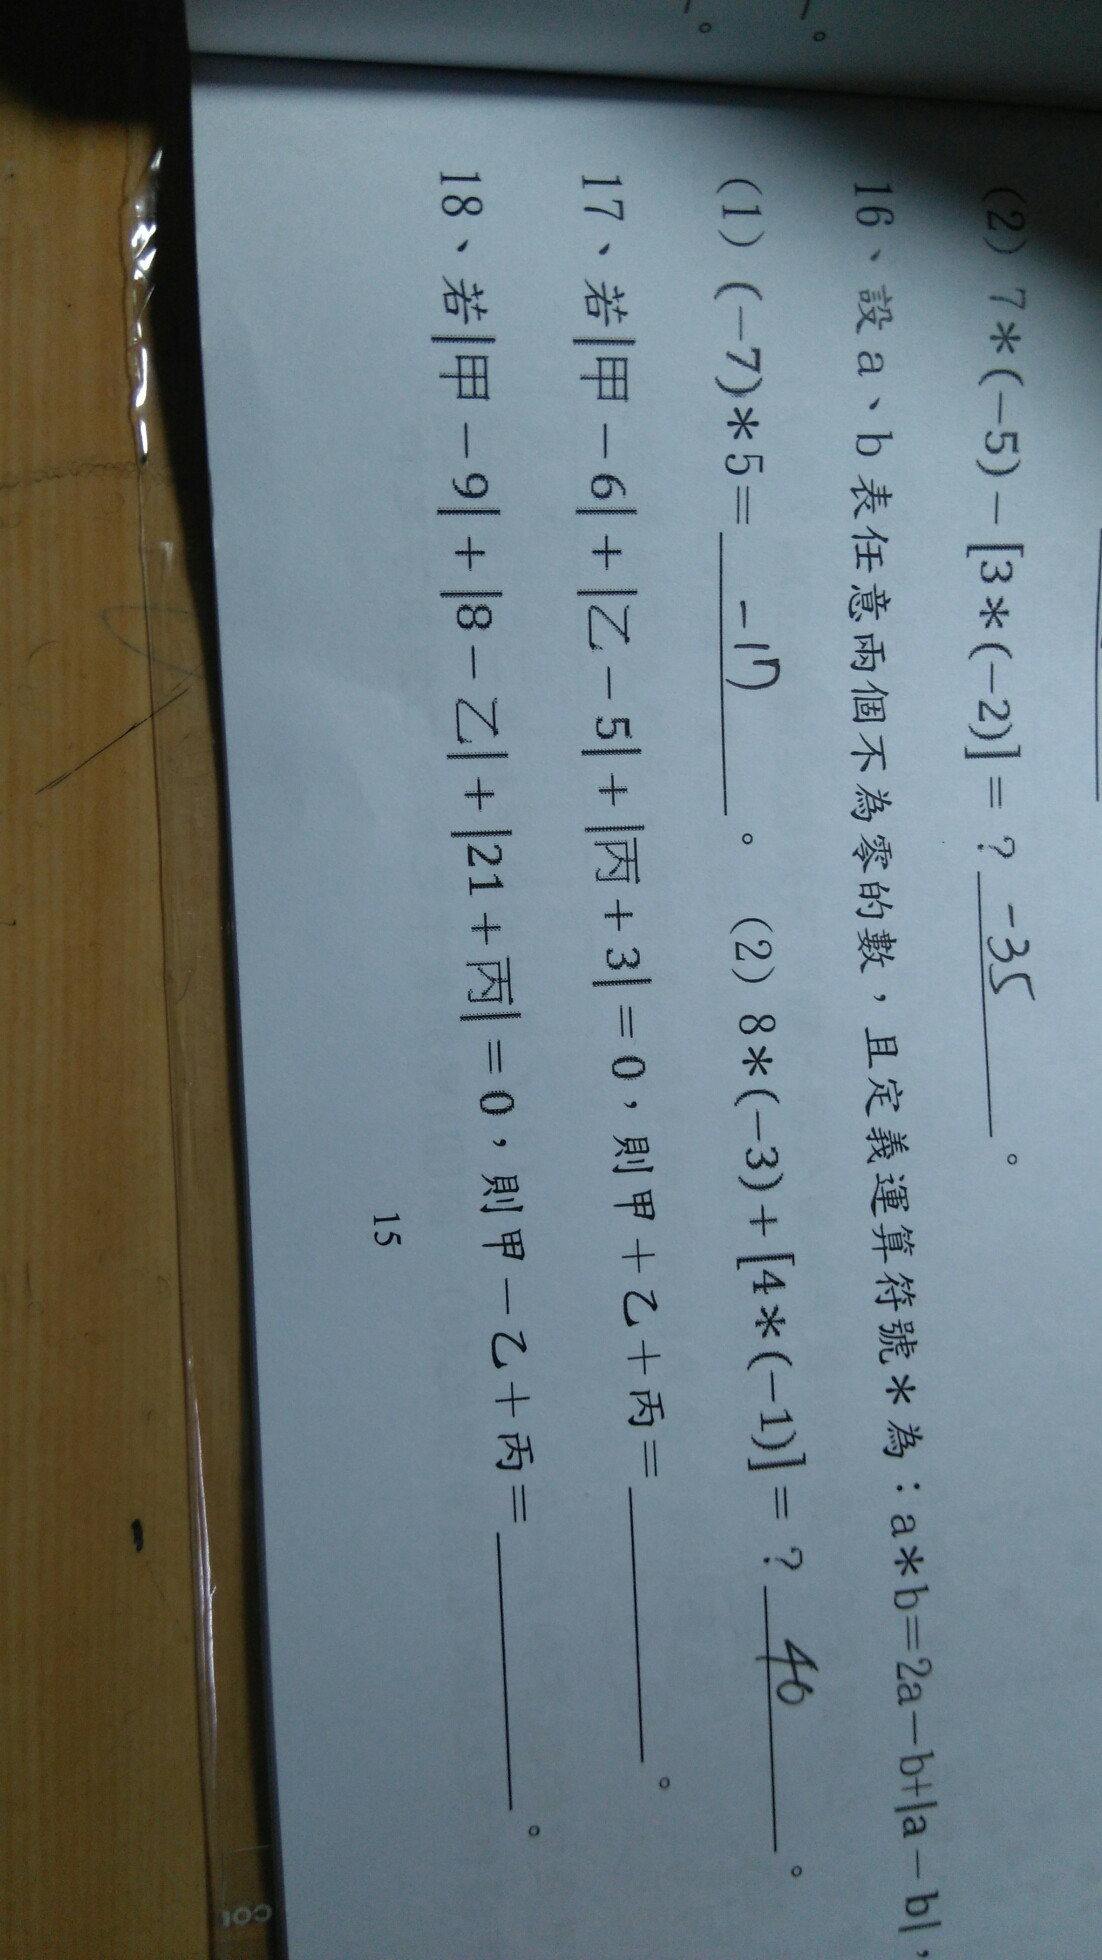 (2) 7*(-5)-[3*(-2)]=? -35 。
16、設a、b表任意兩個不為零的數，且定義運算符號*為：a*b=2a-b+|a-b|，
(1) (-7)*5= 。 (2) 8*(-3)+[4*(-1)]=? 。
17、若|甲-6|+|乙-5|+|丙+3|=0，則甲+乙+丙= 。
18、若|甲-9|+|8-乙|+|21+丙|=0，則甲-乙+丙= 。
15